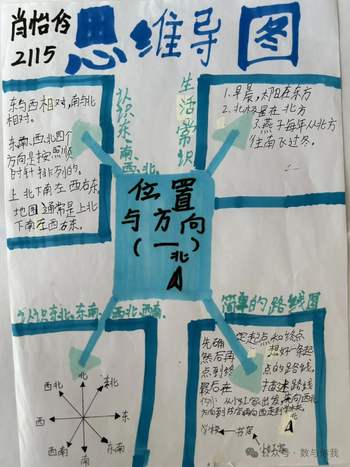 肖怡伶
2115
思维导图
认识东、南、西、北
东与西相对,南与北
相对。
东、南、西、北四个
方向是按照顺
时针排列的。
上北下南左西右东
地图通常是上北
下南左西右东。
生活常识
1.早晨,太阳在东方
2.北极星在北方
3.燕子每年从北方
往南飞过冬。
位置
与方向
(一)
北
认识东北、东南、西北、西南
北
西北
东北
西
东
西南
东南
南
简单的路线图
先确定起点和终点
然后再想好一条起
点到终点的路线,
最后在描述路线
北
学校
书店
公众号·数与你我